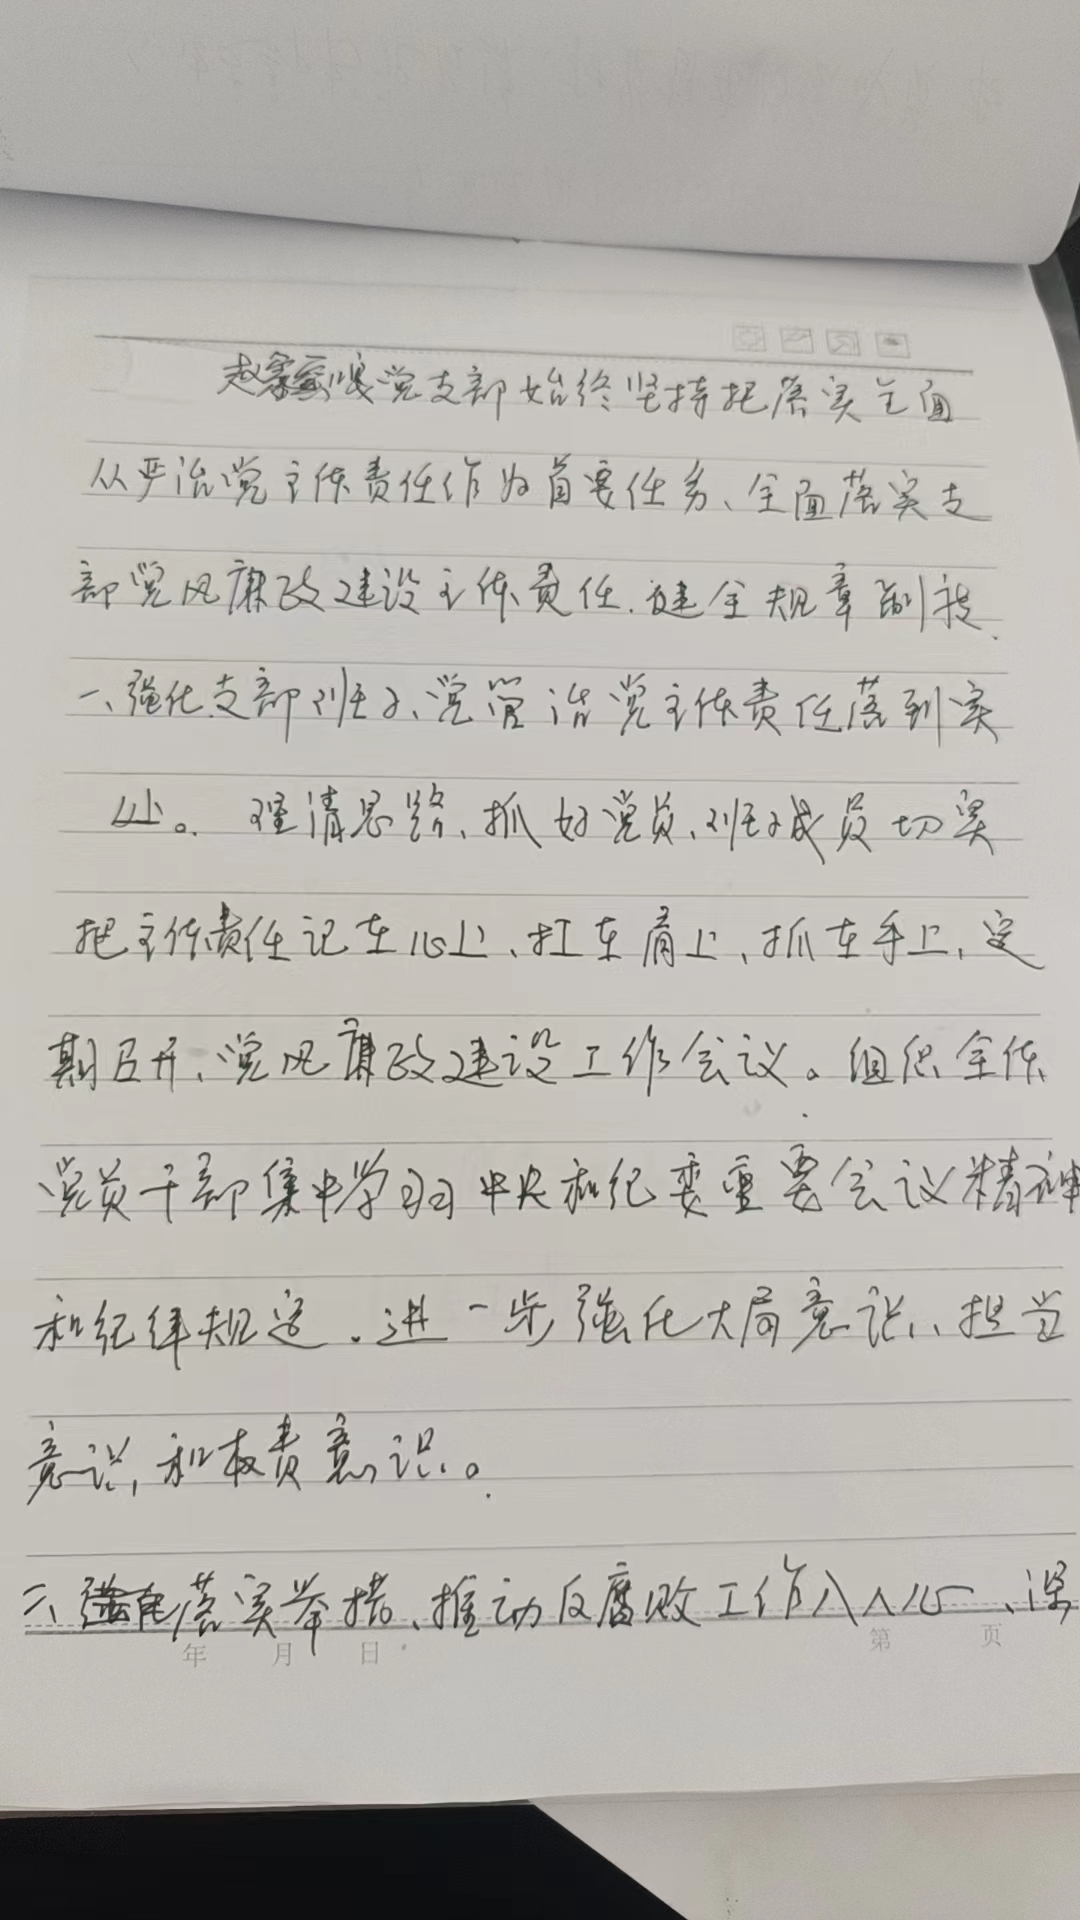 党支部始终坚持把落实全面
从严治党主体责任作为首要任务、全面落实支
部党风廉政建设主体责任.健全规章制
一、强化支部班子、党管治党主体责任落到实
处。理清思路、抓好党员、班子成员切实
把主体责任记在心上、扛在肩上、抓在手上、定
期召开、党风廉政建设工作会议。组织全体
党员干部集中学习中央和纪委重要会议精神
和纪律规定.进一步强化大局意识、担当
意识,和权责意识。
二、落实举措、推动反腐败工作入人心、深
年 月 日 第 页